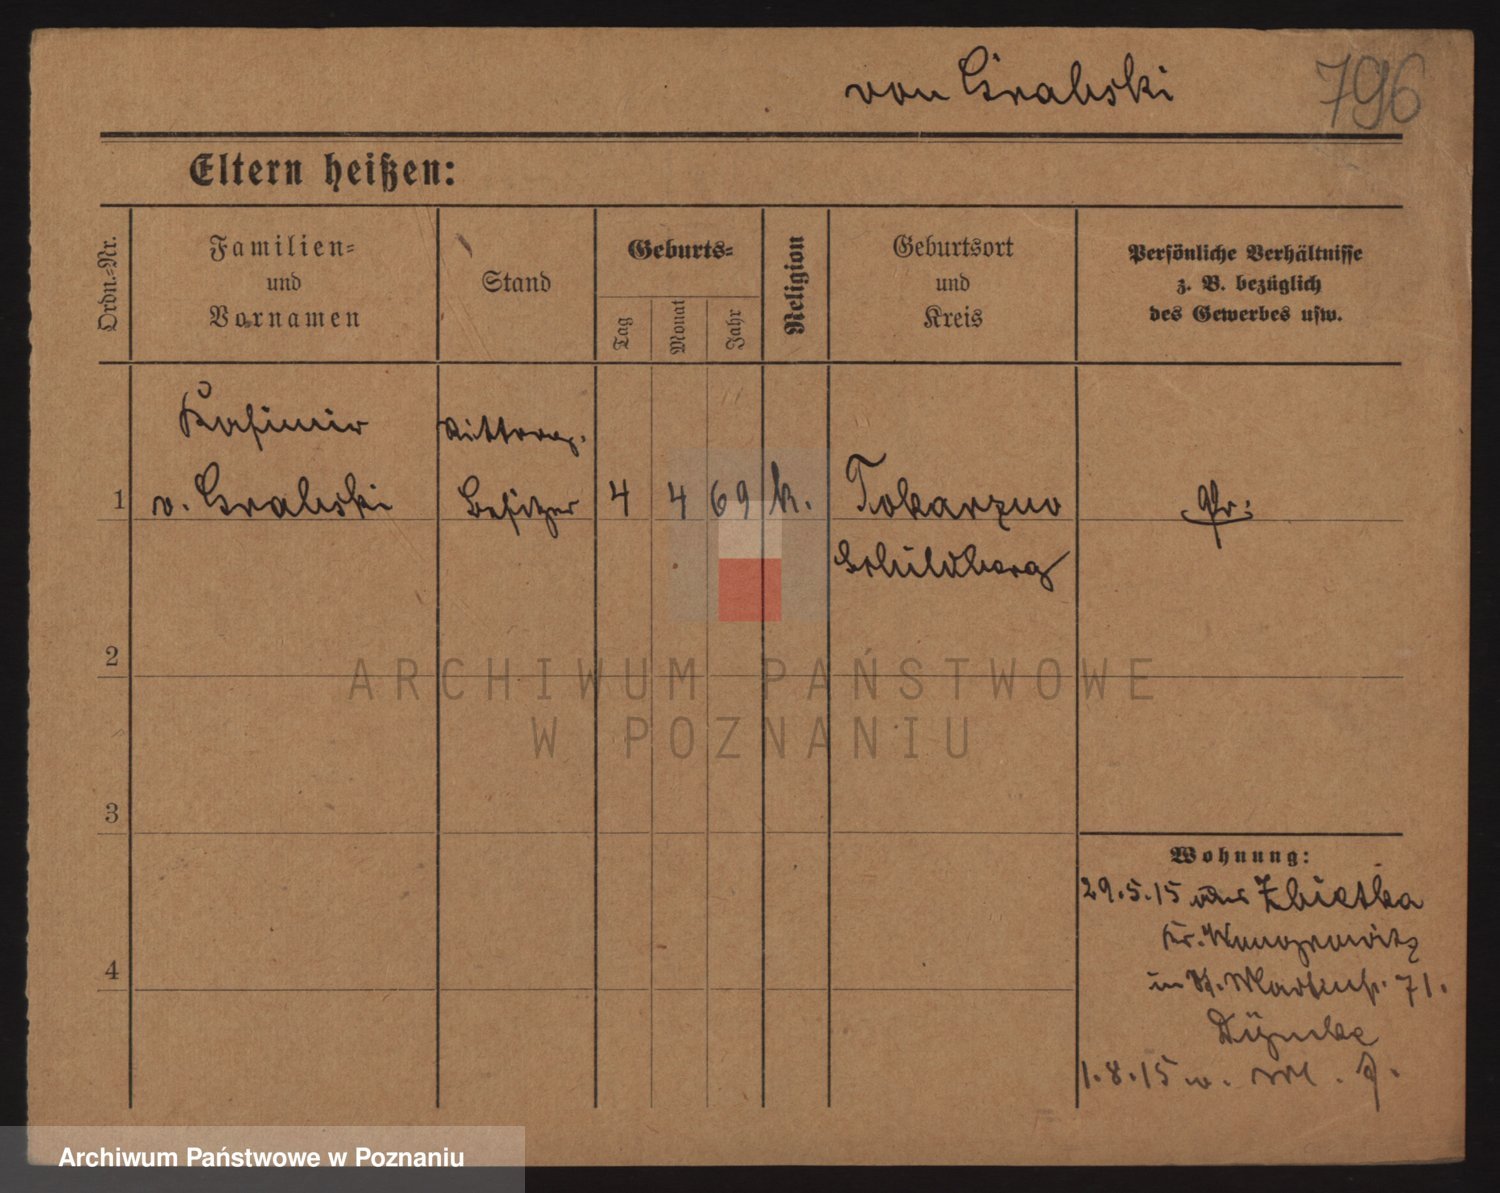 von Grabski
796
Eltern heißen:
Ordn.-Nr.
Familien-
und
Vornamen
Stand
Geburts-
Tag
Monat
Jahr
Religion
Geburtsort
und
Kreis
Persönliche Verhältnisse
z. B. bezüglich
des Gewerbes usw.
Kasimir
Ritterg.
1
v. Grabski
Besitzer
4
4
69
k.
Tokarzew
Pr:
Schildberg
2
3
4
Wohnung:
29.5.15 aus Zbietka
Kr. Wongrowitz
in St. Martinst. 71.
1.8.15
ARCHIWUM PAŃSTWOWE
W POZNANIU
Archiwum Państwowe w Poznaniu